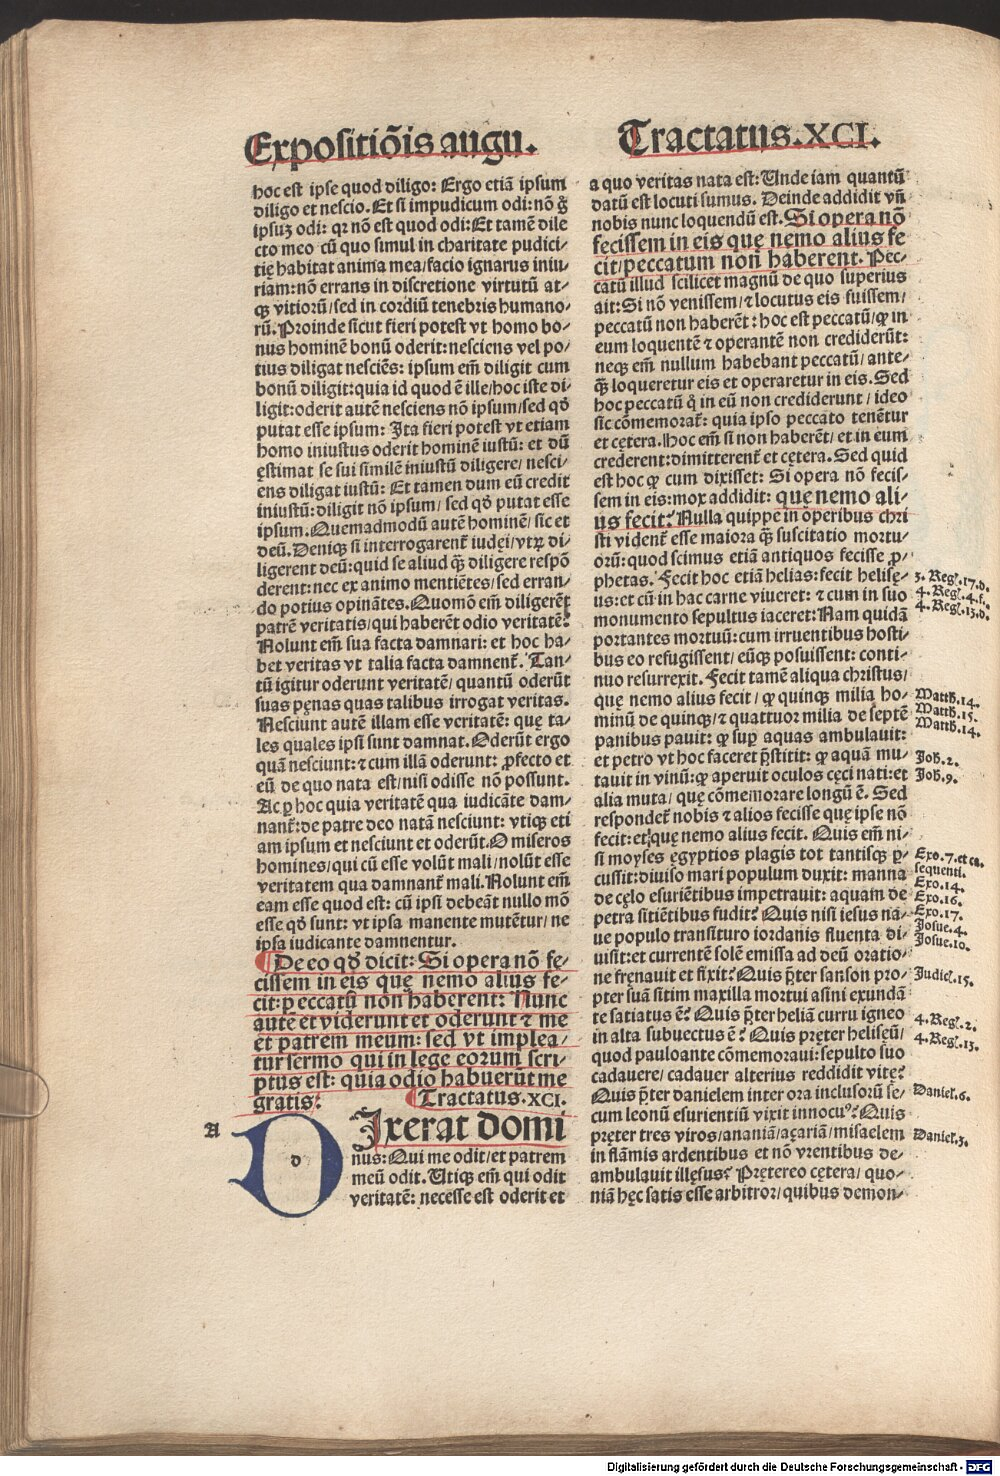 Expositiõis augu.
Tractatus.XCI.
hoc est ipse quod diligo: Ergo etiã ipsum
diligo et nescio. Et si impudicum odi: nõ ꝙ̃
ipsuꝫ odi: qꝛ nõ est quod odi: Et tamẽ dile
cto meo cũ quo simul in charitate pudici/
tię habitat anima mea/facio ignarus iniu/
riam: nõ errans in discretione virtutũ at/
qꝫ vitiorũ/sed in cordiũ tenebris humano/
rũ. Proinde sicut fieri potest vt homo bo/
nus hominẽ bonũ oderit: nesciens vel po/
tius diligat nesciẽs: ipsum em̃ diligit cum
bonũ diligit: quia id quod ẽ ille/hoc iste di/
ligit: oderit autẽ nesciens nõ ipsum/sed qđ
putat esse ipsum: Ita fieri potest vt etiam
homo iniustus oderit hominẽ iustũ: et dũ
ęstimat se sui similẽ iniustũ diligere/nesci/
ens diligat iustũ: Et tamen dum eũ credit
iniustũ: diligit nõ ipsum/ sed qđ putat esse
ipsum. Quemadmodũ autẽ hominẽ/ sic et
deũ. Deniqꝫ si interrogarent̃ iudęi/vtꝝ di/
ligerent deũ: quid se aliud q̃ꝫ diligere respõ
derent: nec ex animo mentiẽtes/sed erran/
do potius opinãtes. Quomõ em̃ diligerẽt
patrẽ veritatis/qui haberẽt odio veritatẽ?
Nolunt em̃ sua facta damnari: et hoc ha/
bet veritas vt talia facta damnent̃. Tan/
tũ igitur oderunt veritatẽ/ quantũ oderũt
suas pęnas quas talibus irrogat veritas.
Nesciunt autẽ illam esse veritatẽ: quę ta/
les quales ipsi sunt damnat. Oderũt ergo
quã nesciunt: ⁊ cum illã oderunt: ꝓfecto et
eũ de quo nata est/nisi odisse nõ possunt.
Ac ꝑ hoc quia veritatẽ qua iudicãte dam/
nant̃: de patre deo natã nesciunt: vtiqꝫ eti
am ipsum et nesciunt et oderũt. O miseros
homines/qui cũ esse volũt mali/nolũt esse
veritatem qua damnant̃ mali. Nolunt em̃
eam esse quod est: cũ ipsi debeãt nullo mõ
esse qđ sunt: vt ipsa manente mutẽtur/ ne
ipsa iudicante damnentur.
¶ De eo qđ dicit: Si opera nõ fę/
cissem in eis quę nemo alius fe/
cit: peccatũ non haberent: Nunc
autẽ et viderunt et oderunt ⁊ me
et patrem meum: sed vt implea/
tur sermo qui in lege eorum scri/
ptus est: quia odio habuerũt me
gratis:
¶ Tractatus.XCI.
A
d
Ixerat domi
nus: Qui me odit/et patrem
meũ odit. Utiqꝫ em̃ qui odit
veritatẽ: necesse est oderit et
a quo veritas nata est: Unde iam quantũ
datũ est locuti sumus. Deinde addidit vñ
nobis nunc loquendũ est. Si opera nõ
fecissem in eis quę nemo alius fe
cit/peccatum non haberent. Pec/
catũ illud scilicet magnũ de quo superius
ait: Si nõ venissem/⁊ locutus eis fuissem/
peccatũ non haberẽt: hoc est peccatũ/ꝙ in
eum loquentẽ ⁊ operantẽ non crediderũt:
neqꝫ em̃ nullum habebant peccatũ/ ante/
q̃ꝫ loqueretur eis et operaretur in eis. Sed
hoc peccatũ ꝙ̃ in eũ non crediderunt/ ideo
sic cõmemorat̃: quia ipso peccato tenẽtur
et cętera. Hoc em̃ si non haberẽt/ et in eum
crederent: dimitterent̃ et cętera. Sed quid
est hoc ꝙ cum dixisset: Si opera nõ fecis/
sem in eis: mox addidit: quę nemo ali/
us fecit? Nulla quippe in operibus chri
sti vident̃ esse maiora q̃ꝫ suscitatio mortu/
orũ: quod scimus etiã antiquos fecisse ꝓ/
phetas. Fecit hoc etiã helias: fecit helisę/
us: et cũ in hac carne viueret: ⁊ cum in suo
monumento sepultus iaceret: Nam quidã
portantes mortuũ: cum irruentibus hosti/
bus eo refugissent/eũqꝫ posuissent: conti/
nuo resurrexit. Fecit tamẽ aliqua christus/
quę nemo alius fecit/ ꝙ quinqꝫ milia ho/
minũ de quinqꝫ/⁊ quattuor milia de septẽ
panibus pauit: ꝙ suꝑ aquas ambulauit:
et petro vt hoc faceret p̃stitit: ꝙ aquã mu/
tauit in vinũ: ꝙ aperuit oculos cęci nati: et
alia muta/ quę cõmemorare longũ ẽ. Sed
respondet̃ nobis ⁊ alios fecisse quę ipse nõ
fecit: et quę nemo alius fecit. Quis em̃ ni/
si moyses ęgyptios plagis tot tantisqꝫ ꝑ/
cussit: diuiso mari populum duxit: manna
de cęlo esuriẽtibus impetrauit: aquam de
petra sitiẽtibus fudit? Quis nisi iesus na/
ue populo transituro iordanis fluenta di/
uisit: et currentẽ solẽ emissa ad deũ oratio/
ne frenauit et fixit? Quis p̃ter sanson pro/
pter suã sitim maxilla mortui asini exundã
te satiatus ẽ? Quis p̃ter heliã curru igneo
in alta subuectus ẽ? Quis pręter helisęũ/
quod pauloante cõmemoraui: sepulto suo
cadauere/ cadauer alterius reddidit vitę?
Quis p̃ter danielem inter ora inclusorũ se/
cum leonũ esurientiũ vixit innocuꝰ? Quis
pręter tres viros/ananiã/açariã/misaelem
in flãmis ardentibus et nõ vrentibus de/
ambulauit illęsus? Prętereo cętera/ quo/
niã hęc satis esse arbitror/quibus demon/
3. Reg̃.17.d.
4. Reg̃.4.f.
4. Reg̃.13.d.
Matth.14.
Matth.15.
Matth.14.
Joh.2.
Joh.9.
Exo.7.et ca.
sequenti.
Exo.14.
Exo.16.
Exo.17.
Josue.4.
Josue.10.
Judic̃.15.
4.Reg̃.2.
4.Reg̃.13.
Daniel.6.
Daniel.3.
Digitalisierung gefördert durch die Deutsche Forschungsgemeinschaft - DFG